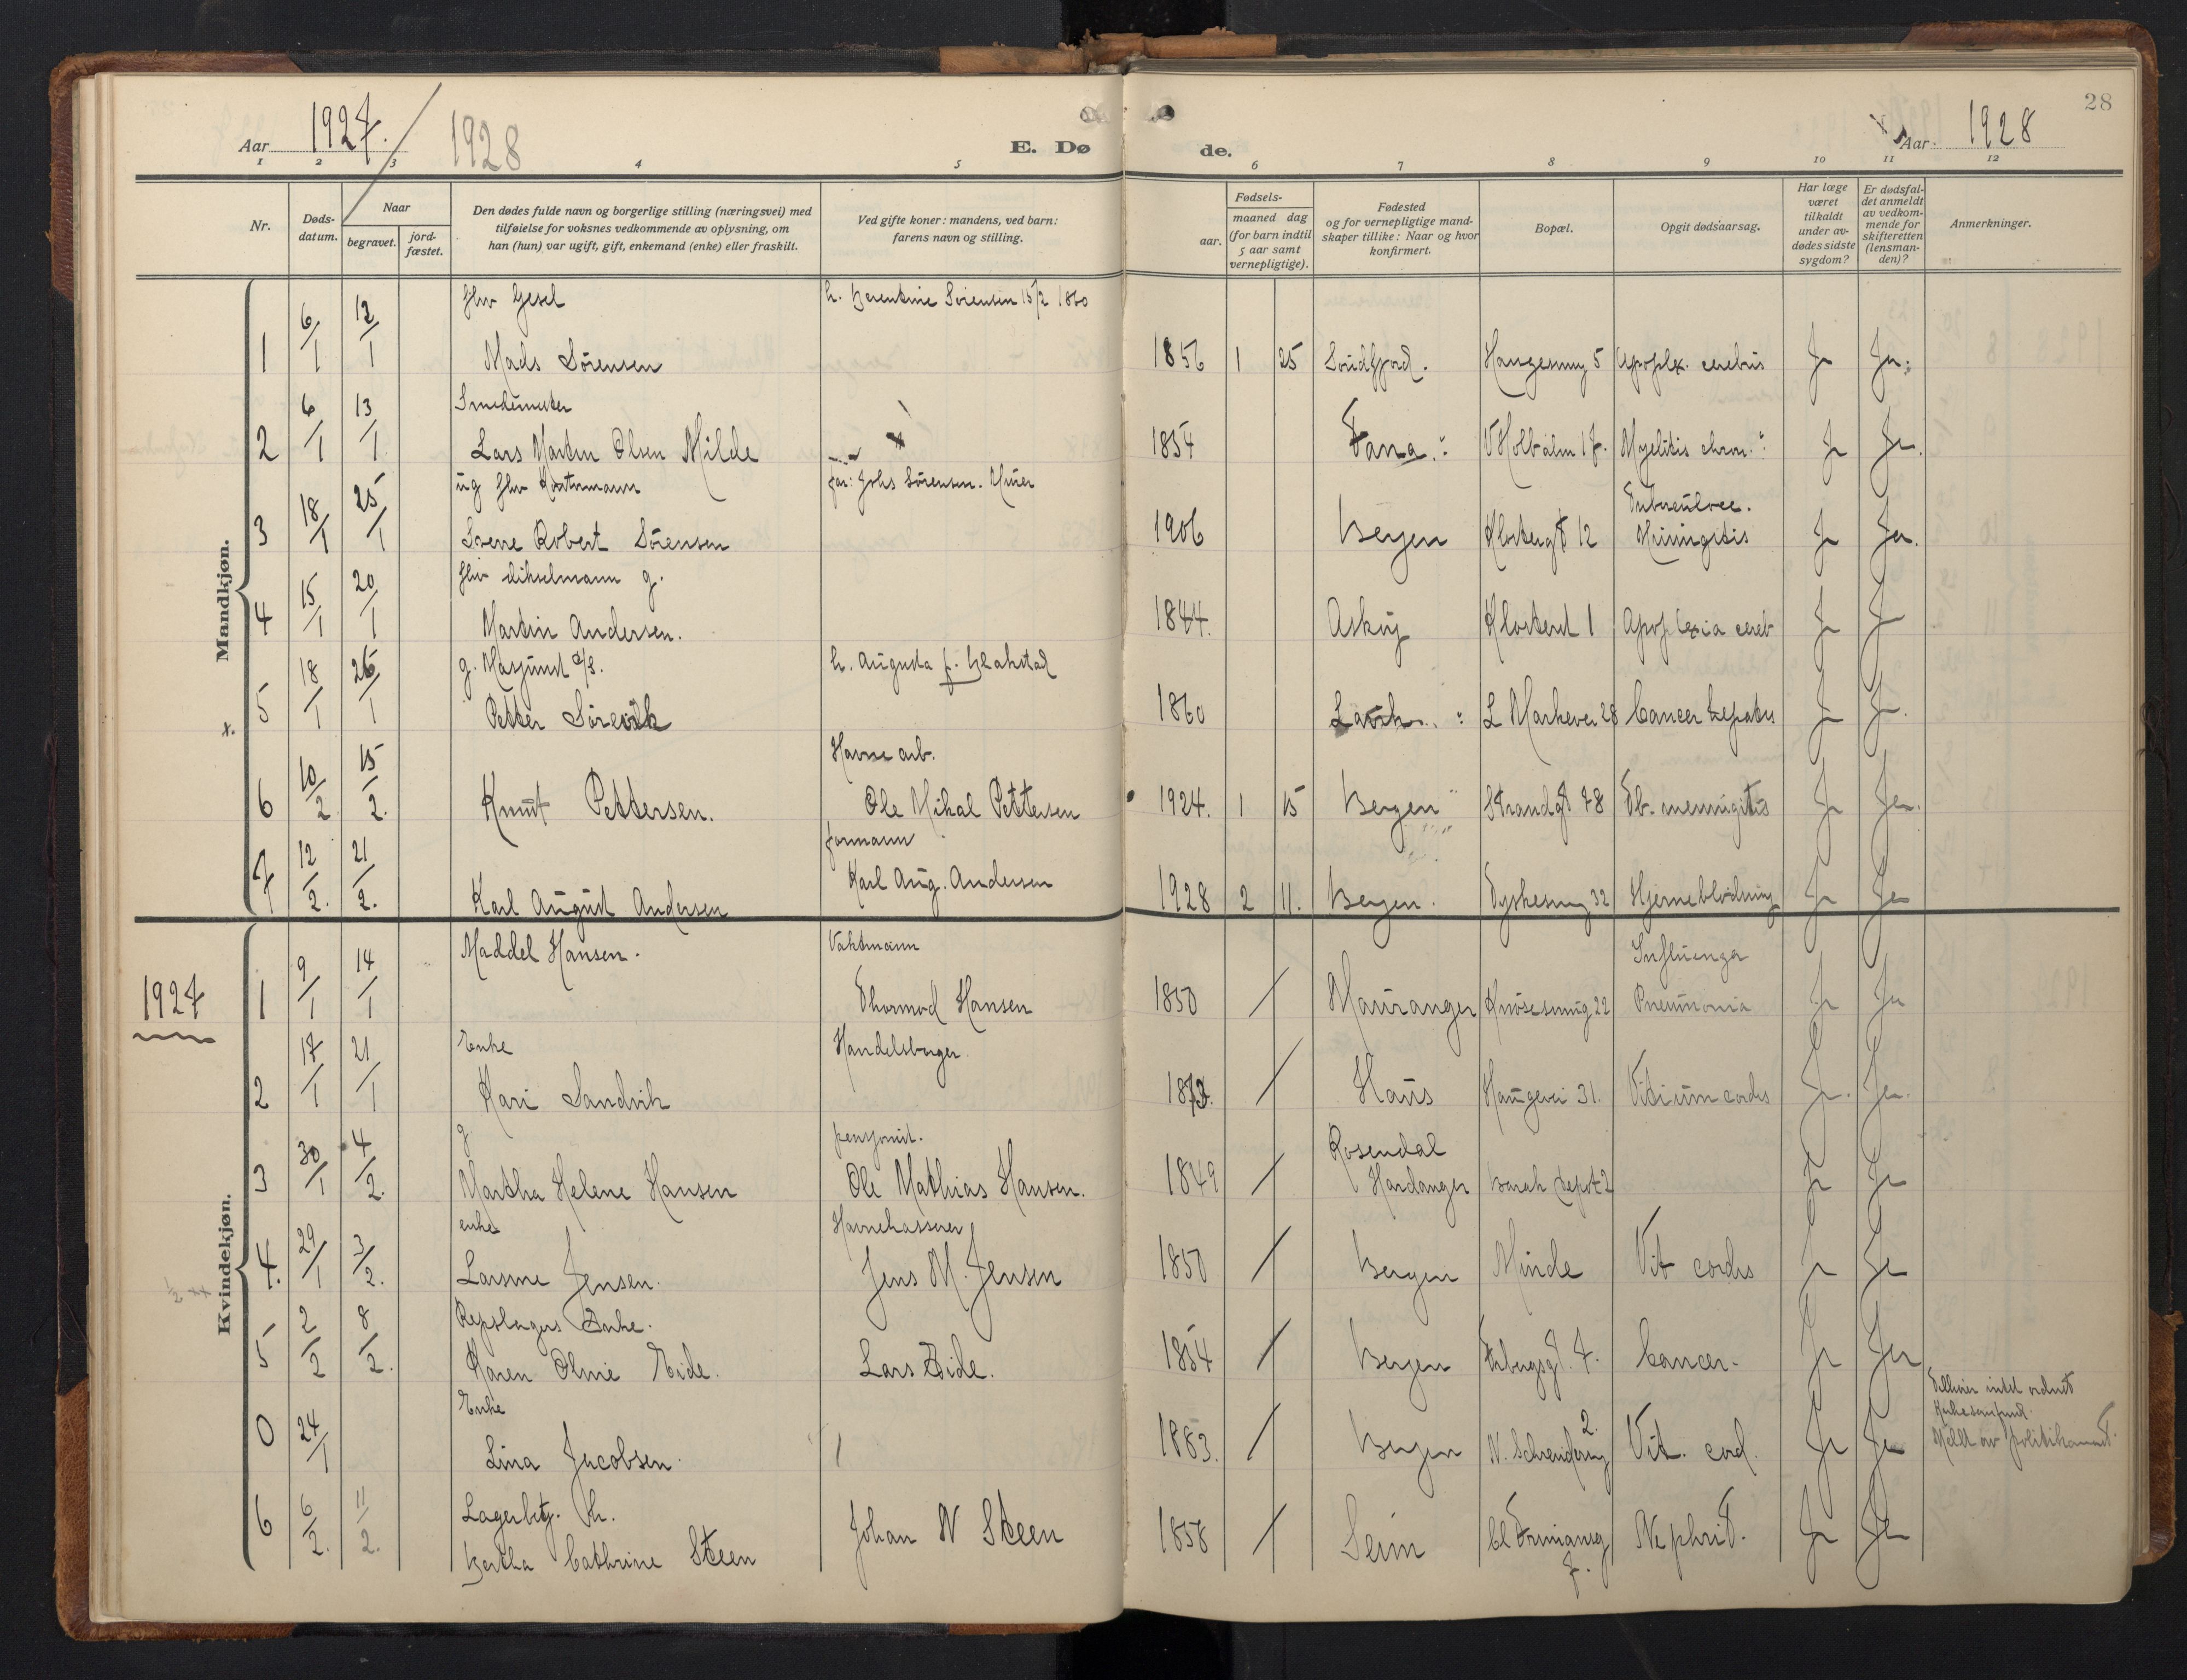 Aar 1927. 1928
E. Dø
de.
Aar 1928
28
1 2 3 4 5 6 7 8 9 10 11 12
Nr.
Døds-
datum.
Naar
begravet.
jord-
fæstet.
Den dødes fulde navn og borgerlige stilling (næringsvei) med
tilføielse for voksnes vedkommende av oplysning, om
han (hun) var ugift, gift, enkemand (enke) eller fraskilt.
Ved gifte koner: mandens, ved barn:
farens navn og stilling.
aar.
Fødsels-
maaned dag
(for barn indtil
5 aar samt
vernepligtige).
Fødested
og for vernepligtige mand-
skaper tillike: Naar og hvor
konfirmert.
Bopæl.
Opgit dødsaarsag.
Har læge
været
tilkaldt
under av-
dødes sidste
sygdom?
Er dødsfal-
det anmeldt
av vedkom-
mende for
skifteretten
(lensman-
den)?
Anmerkninger.
Mandkjøn.
fhv
Sørensen 15/2 1860
1 6/1 12/1 Mads Sørensen 1856 1 25 Søndfjord. 5 Apoplex. cerebris Ja Ja
Smedemester
2 6/1 13/1 Lars Martin Olsen Milde 1854 Fana Myelitis chron. Ja Ja.
ug fhv Kontormann far: Johs Sørensen. Murer
3 18/1 25/1 Robert Sørensen 1906 Bergen Klostergt 12 Meningitis Ja Ja.
fhv g.
4 15/1 20/1 Martin Andersen. 1844. Askøy Klosteret 1 Apoplexia cereb Ja Ja
g. h. Augusta f.
x. 5 18/1 26/1 Petter Sørevik 1860 L Markevei 28 Cancer hepatis Ja Ja.
Havne arb.
6 10/2. 15/2. Knut Pettersen. Ole Mikal Pettersen 1924. 1 15 Bergen Strandgt 78 Tb. meningitis Ja Ja.
formann
7 12/2. 21/2. Karl August Andersen Karl Aug. Andersen 1928 2 11. Bergen. 32 Hjerneblødning Ja Ja
Kvindekjøn.
1927
Maddel Hansen. Vaktmann Influenza
1 9/1 14/1 Thormod Hansen 1850 / Mauranger Knøsesmug 22 Pneumonia Ja Ja
Enke Handelsborger
2 17/1 21/1 Kari Sandvik / Haus Haugevei 31. Vitium cordis Ja. Ja.
g pensjonist. Rosendal
3 30/1 4/2. Martha Helene Hansen Ole Mathias Hansen. 1849 / Hardanger Ja Ja
enke Havnekasserer
4. 29/1 3/2. Larsine Jensen. Jens M. Jensen 1850 / Bergen Minde Vit cordis Ja Ja
Repslagers Enke.
5 2/2 8/2. Karen Oline Eide. Lars Eide. 1854 / Bergen 7. Cancer. Ja Ja
Enke
0 24/1 Lina Jacobsen. / 1883. / Bergen 2 Vit. cord. Ja Ja
Tilhører intet ordnet
Kirkesamfund.
Meldt av politikamret.
Lagerbetj. h.
6 6/2. 11/2. Bertha Cathrine Steen Johan N Steen 1858 / Seim 7. Nephrit. Ja Ja